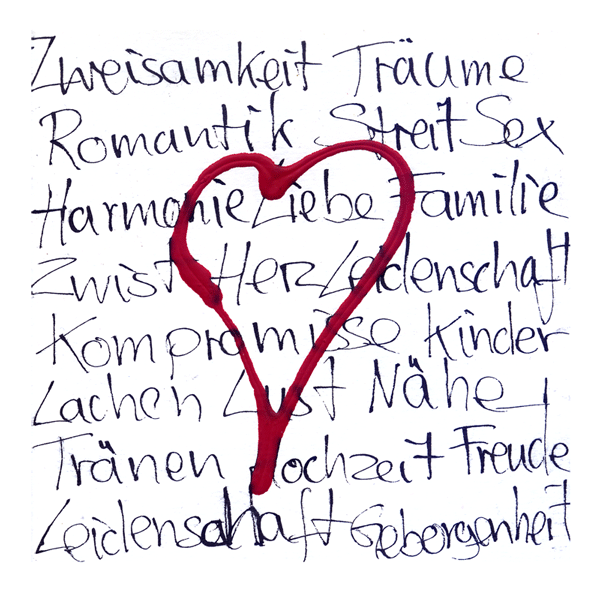 Zweisamkeit Träume
Romantik Streit Sex
Harmonie Liebe Familie
Zwist Herz Leidenschaft
Kompromisse Kinder
Lachen Lust Nähe
Tränen Hochzeit Freude
Leidenschaft Geborgenheit